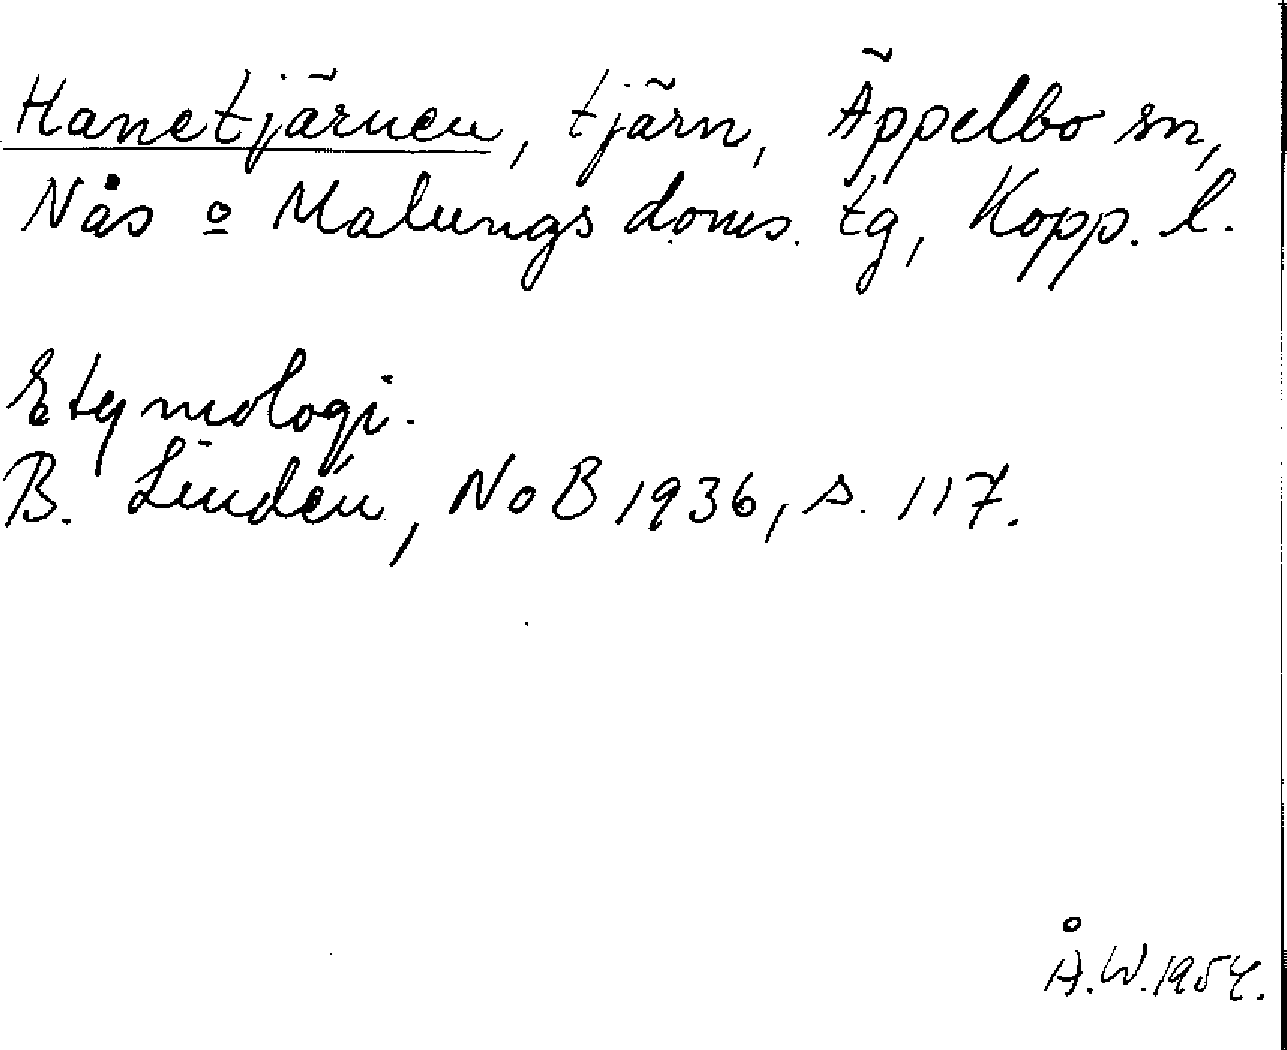 Hanetjärnen, tjärn, Äppelbo sn,
Nås o Malungs doms. tg, Kopp. l.
Etymologi.
B. Lindén, NoB 1936, s. 117.
Å.W. 1954.